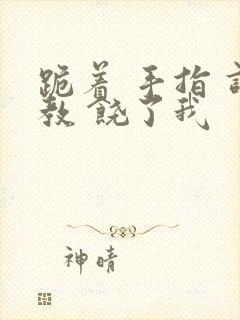 跪着 手指
教 饶了我
神晴